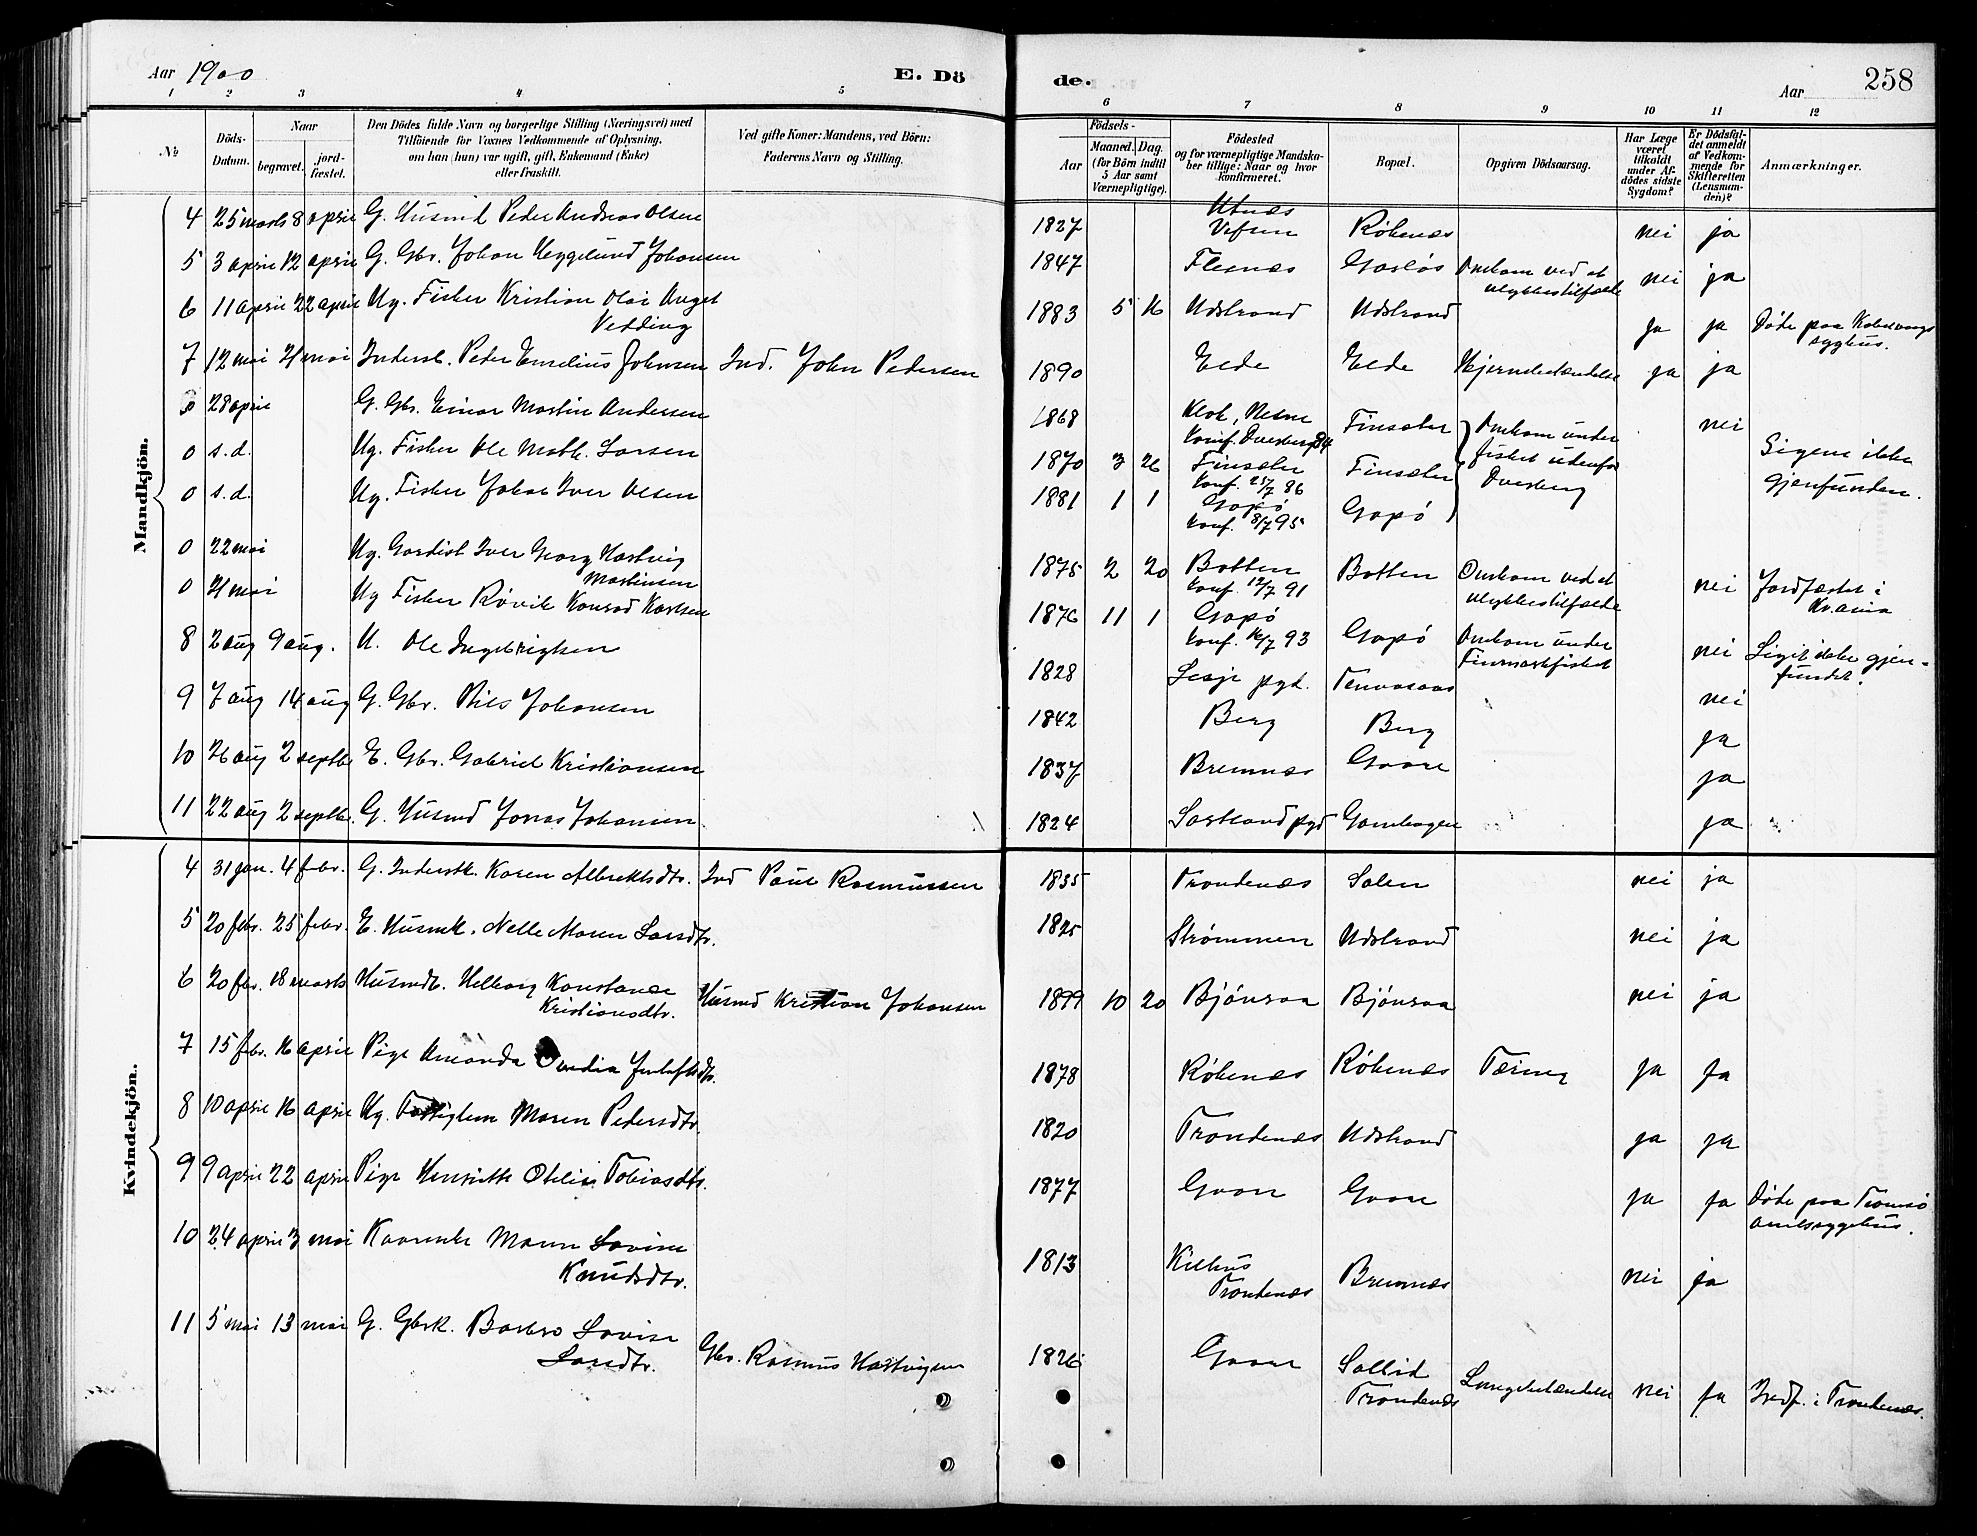 Aar 1900 E. Dö de. Aar 258
1 2 3 4 5 6 7 8 9 10 11 12
№
Döds-Datum.
Naar
begravet.
jordfæstet.
Den Dödes fulde Navn og borgerlige Stilling (Næringsvei) med
Tilföiende for Voxnes Vedkommende af Oplysning,
om han (hun) var ugift, gift, Enkemand (Enke)
eller fraskilt.
Ved gifte Koner: Mandens, ved Börn:
Faderens Navn og Stilling.
Födsels-
Aar
Maaned. Dag.
(for Börn indtil
5 Aar samt
Værnepligtige).
Födested
og for værnepligtige Mandskaber
tillige: Naar og hvor
konfirmeret.
Bopæl.
Opgiven Dödsaarsag.
Har Læge
været
tilkaldt
under Afdödes
sidste
Sygdom?
Er Dödsfaldet
anmeldt
af Vedkommende
for
Skifteretten
(Lensmanden)?
Anmærkninger.
Mandkjön.
4 25 marts 8 april G. Husmd Peder Andreas Olsen 1827 Utnæs
Vefsen Røkenæs nei ja
5 3 april 12 april G. Gbr. Johan Heggelund Johansen 1847 Flesnæs Omkom ved et
ulykkestilfælde nei ja
6 11 april 22 april Ug. Fisker Kristian Olai Angel
Vedding 1883 5 16 Udstrand Udstrand ja ja Døde paa Kabelvaag
sygehus.
7 12 mai 21 mai Inderst. Peder Emelius Johnsen Ind. John Pedersen 1890 Elde Elde Hjernebetændelse ja ja
0 28 april G. Gbr. Einar Martin Andersen 1868 Nesne
Konf. Finsæter Omkom under
fisket udenfor nei Ligene ikke
gjenfunden.
0 s.d. Ug. Fisker Ole Math. Larsen 1870 3 26 Finsæter
Konf. 25/7 86 Finsæter
0 s.d. Ug. Fisker Johan Iver Olsen 1881 1 1 Gapø
Konf. 8/7 95 Gapø
0 22 mai Ug. Gardist Iver Georg Hartvig
Martinsen 1875 2 20 Botten
Konf. 12/7 91 Botten Omkom ved et
ulykkestilfælde nei Jordfæstet i
Kr.ania
0 21 mai Ug Fisker Røvik Konrad Karlsen 1876 11 1 Gapø
Konf. 16/7 93 Gapø Omkom under
Finmarkfisket nei Liget ikke gjenfundet.
8 2 aug 9 aug. U. Ole Ingebrigtsen 1828 Lesje pgd. nei
9 7 aug 14 aug G. Gbr. Nils Johansen 1842 Berg Berg ja
10 26 aug 2 septbr E. Gbr. Gabriel Kristiansen 1837 Bremnæs Gaare ja
11 22 aug 2 septbr. G. Husmd Jonas Johansen 1824 Sortland pgd ja
Kvindekjön.
4 31 jan. 4 febr. G. Inderstk. Karen Albrektsdtr. Ind Paul Rasmussen 1835 Trondenæs Salen nei ja
5 20 febr. 25 febr. E. Husmk. Nelle Maren Larsdtr. 1825 Strømmen Udstrand nei ja
6 20 febr. 18 marts Husmdt. Helborg Konstanse
Kristiansdtr. Husmd Kristian Johansen 1899 10 20 Bjónraa Bjónraa nei ja
7 15 febr. 16 april Pige Amanda Ovedia 1878 Røkenæs Røkenæs Tæring ja ja
8 10 april 16 april Ug. Fattiglem Maren Pedersdtr. 1820 Trondenæs Udstrand ja ja
9 9 april 22 april Pige Henriette Otelie Tobiasdtr. 1877 Gaare Gaare ja ja Døde paa Tromsø
amtssygehus.
10 24 april 3 mai Kaarenke Maren Lovise
Knudsdtr. 1813 Kilhus
Trondenæs Bremnæs nei ja
11 5 mai 13 mai G. Gbrk. Barbro Lovise
Larsdtr. Gbr. Rasmus Hartvigsen 1826 Gaare Sollid
Trondenæs Lungebetændelse nei ja Jordf. i Trondenæs.